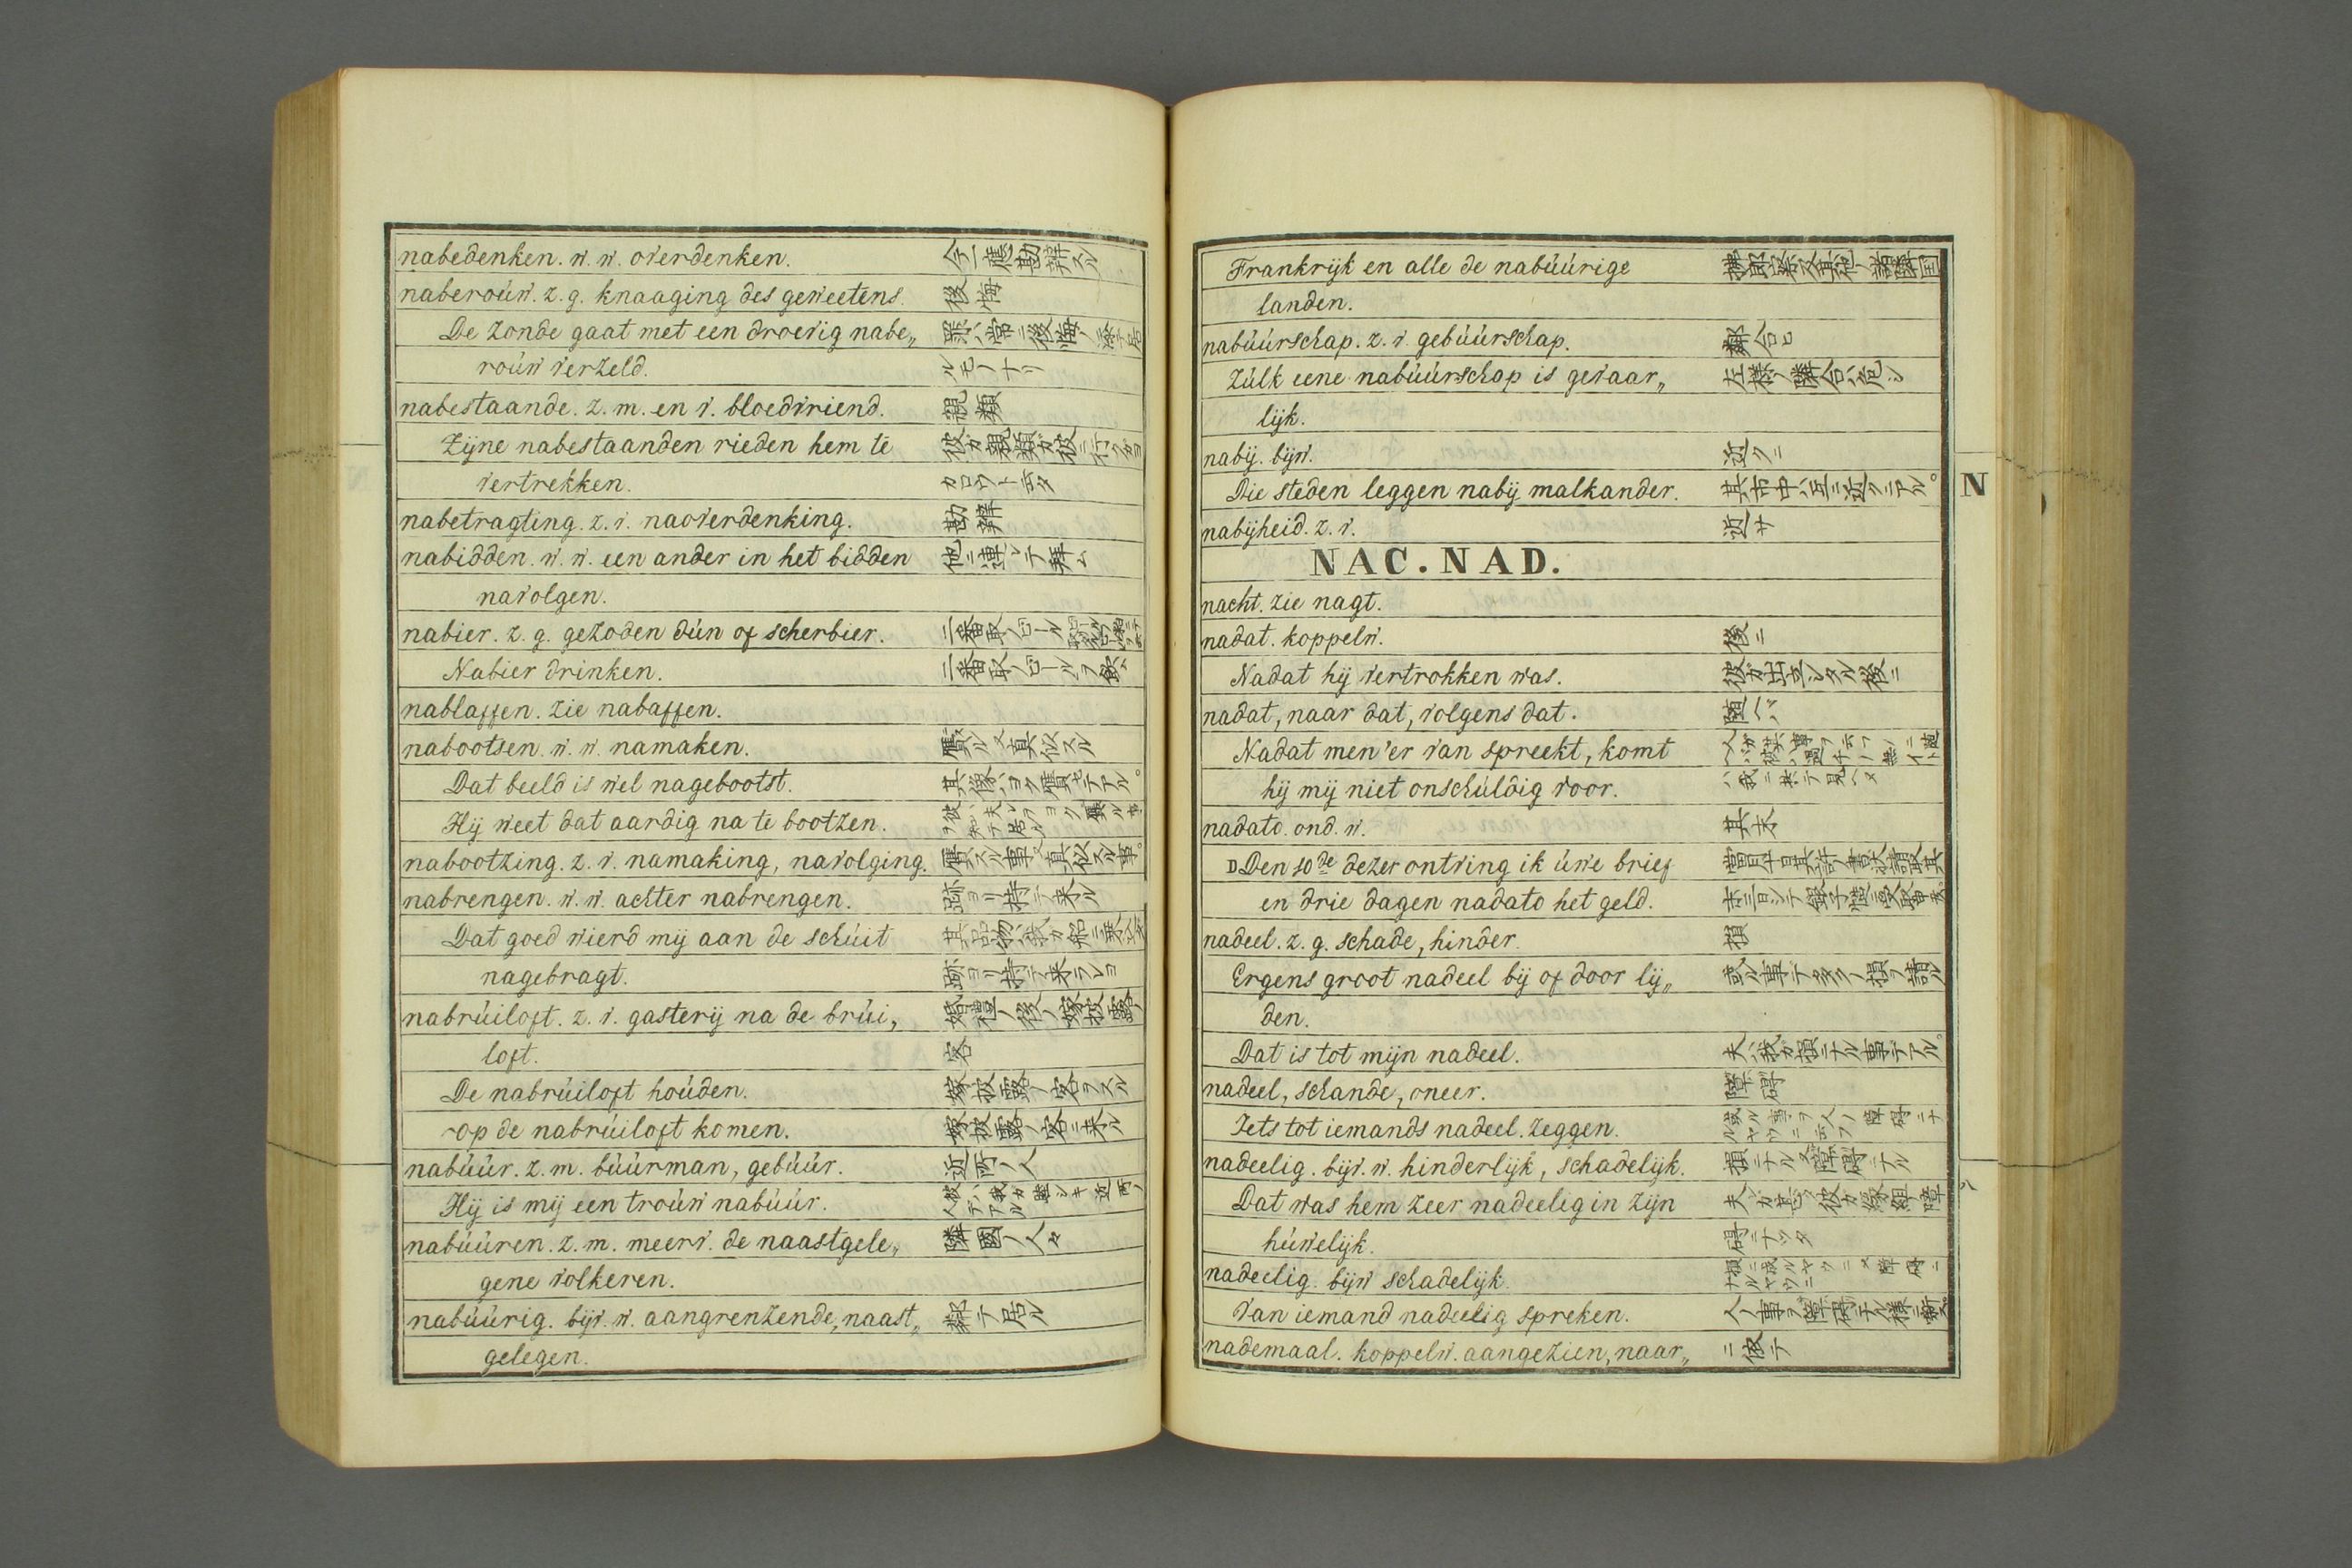 nabedenken. w. w. overdenken. 今一應勘辨スル
naberoúw. z. g. knaaging des geweetens. 後悔
De zonde gaat met een droevig nabe„ 罪ハ常ニ後悔ノ
roúw verzeld. ルモノナリ
nabestaande. z. m. en v. bloedvriend. 親類
Zijne nabestaanden rieden hem te 彼ガ親類ガ彼ニ行クガヨ
vertrekken. カロウト云タ
nabetragting. z. v. naoverdenking. 勘辨
nabidden. w. w. een ander in het bidden 他ニ連レテ拜ム
navolgen.
nabier. z. g. gezoden dún of scherbier. 二番取ノビール
Nabier drinken. 二番取ノビールヲ飲ム
nablaffen. zie nabaffen.
nabootsen. w. w. namaken. 贋ル又真似スル
Dat beeld is wel nagebootst. 其像ハヨク贋セテアル。
Hij weet dat aardig na te bootzen. 彼ハ夫レヲヨク贋ル事ヲ知テ居ル
nabootzing. z. v. namaking, navolging. 贋スル事又真似スル事。
nabrengen. w. w. achter nabrengen. 跡ヨリ持テ来ル
Dat goed wierd mij aan de schúit 其品物ハ我ガ船ニ
nagebragt. 跡ヨリ持テ来ラレヨ
nabrúiloft. z. v. gasterij na de brúi, 婚禮ノ後ノ嫁披露ノ
loft. 客
De nabrúiloft hoúden. 嫁披露ノ客ヲスル
op de nabrúiloft komen. 嫁披露ノ客ニ来ル
nabúúr. z. m. búúrman, gebúúr. 近所ノ人
Hij is mij een troúw nabúúr. 彼ハ我ガ睦シキ近所ノ人デアル
nabúúren. z. m. meerv. de naastgele„ 隣國ノ人々
gene volkeren.
nabúúrig. bijv. w. aangrenzende, naast„ 鄰テ居ル
gelegen.
Frankrijk en alle de nabúúrige 拂郎察又其他ノ諸隣国
landen.
nabúúrschap. z. v. gebúúrschap. 鄰合ヒ
Zúlk eene nabúúrschap is gevaar„ 左様ノ隣合ハ危シ
lijk.
nabij. bijw. 近クニ
Die steden leggen nabij malkander. 其市中ハ互ニ近クニアル。
nabijheid. z. v. 近サ
N
NAC. NAD.
nacht. zie nagt.
nadat. koppelw. 後ニ
Nadat hij vertrokken was. 彼ガ出立シタル後ニ
nadat, naar dat, volgens dat. 随ヘバ
Nadat men 'er van spreekt, komt
hij mij niet onschúldig voor. ハ我ニ来テ見ヘヌ
nadato. ond. w. 其末
D Den 10de dezer ontving ik úwe brief
en drie dagen nadato het geld.
nadeel. z. g. schade, hinder. 損
Ergens groot nadeel bij of door lij„ 或ル事デ多クノ損ヲ請ル
den.
Dat is tot mijn nadeel. 夫ハ我ガ損ニナル事デアル。
nadeel, schande, oneer. 障碍
Iets tot iemands nadeel. zeggen. 或ル事ヲ人ノ障碍ニナルヤウニ云フ
nadeelig. bijv. w. hinderlijk, schadelijk. 損ニナル又障碍ニナル
Dat was hem zeer nadeelig in zijn 夫レガ甚ク彼ガ縁組ノ障
húwelijk. 碍ニナツタ
nadeelig. bijw schadelijk. 損ニ成ルヤウニ又障碍ニナルヤウニ
Van iemand nadeelig spreken. 人ノ事ヲ障碍ニナル様ニ
nademaal. koppelw. aangezien, naar„ ニ依テ